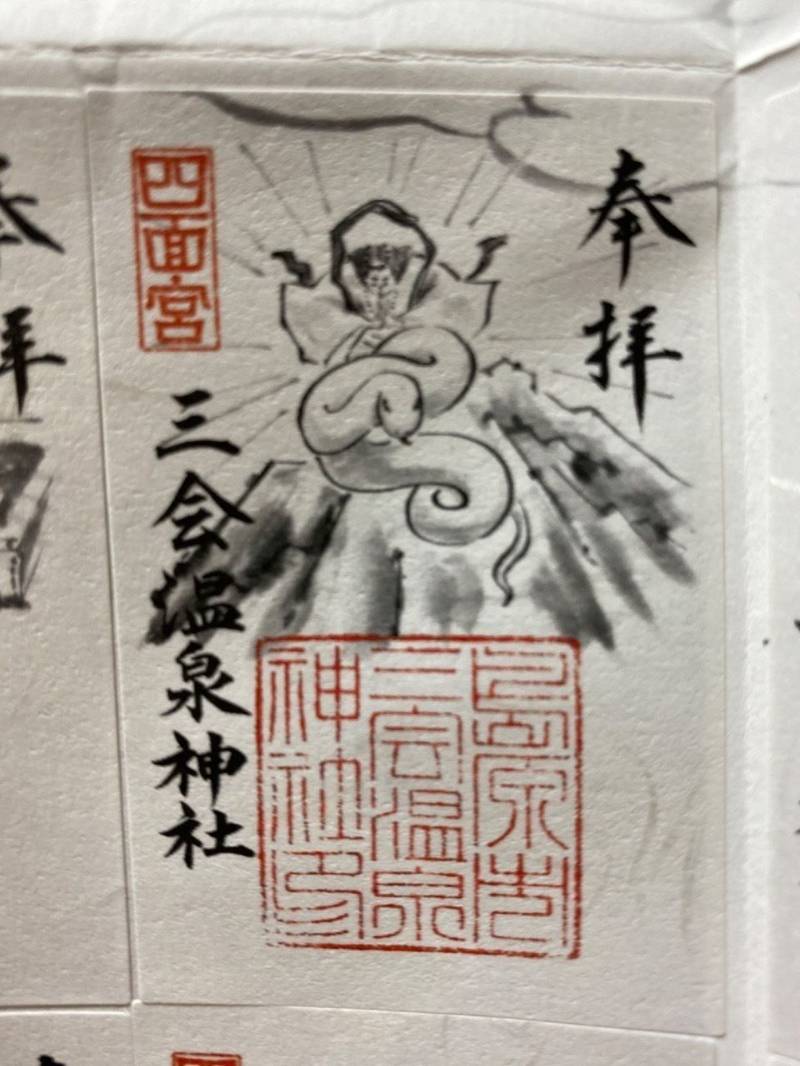 奉拝
四面宮
三会温泉神社
島原市
三会温泉
神社印